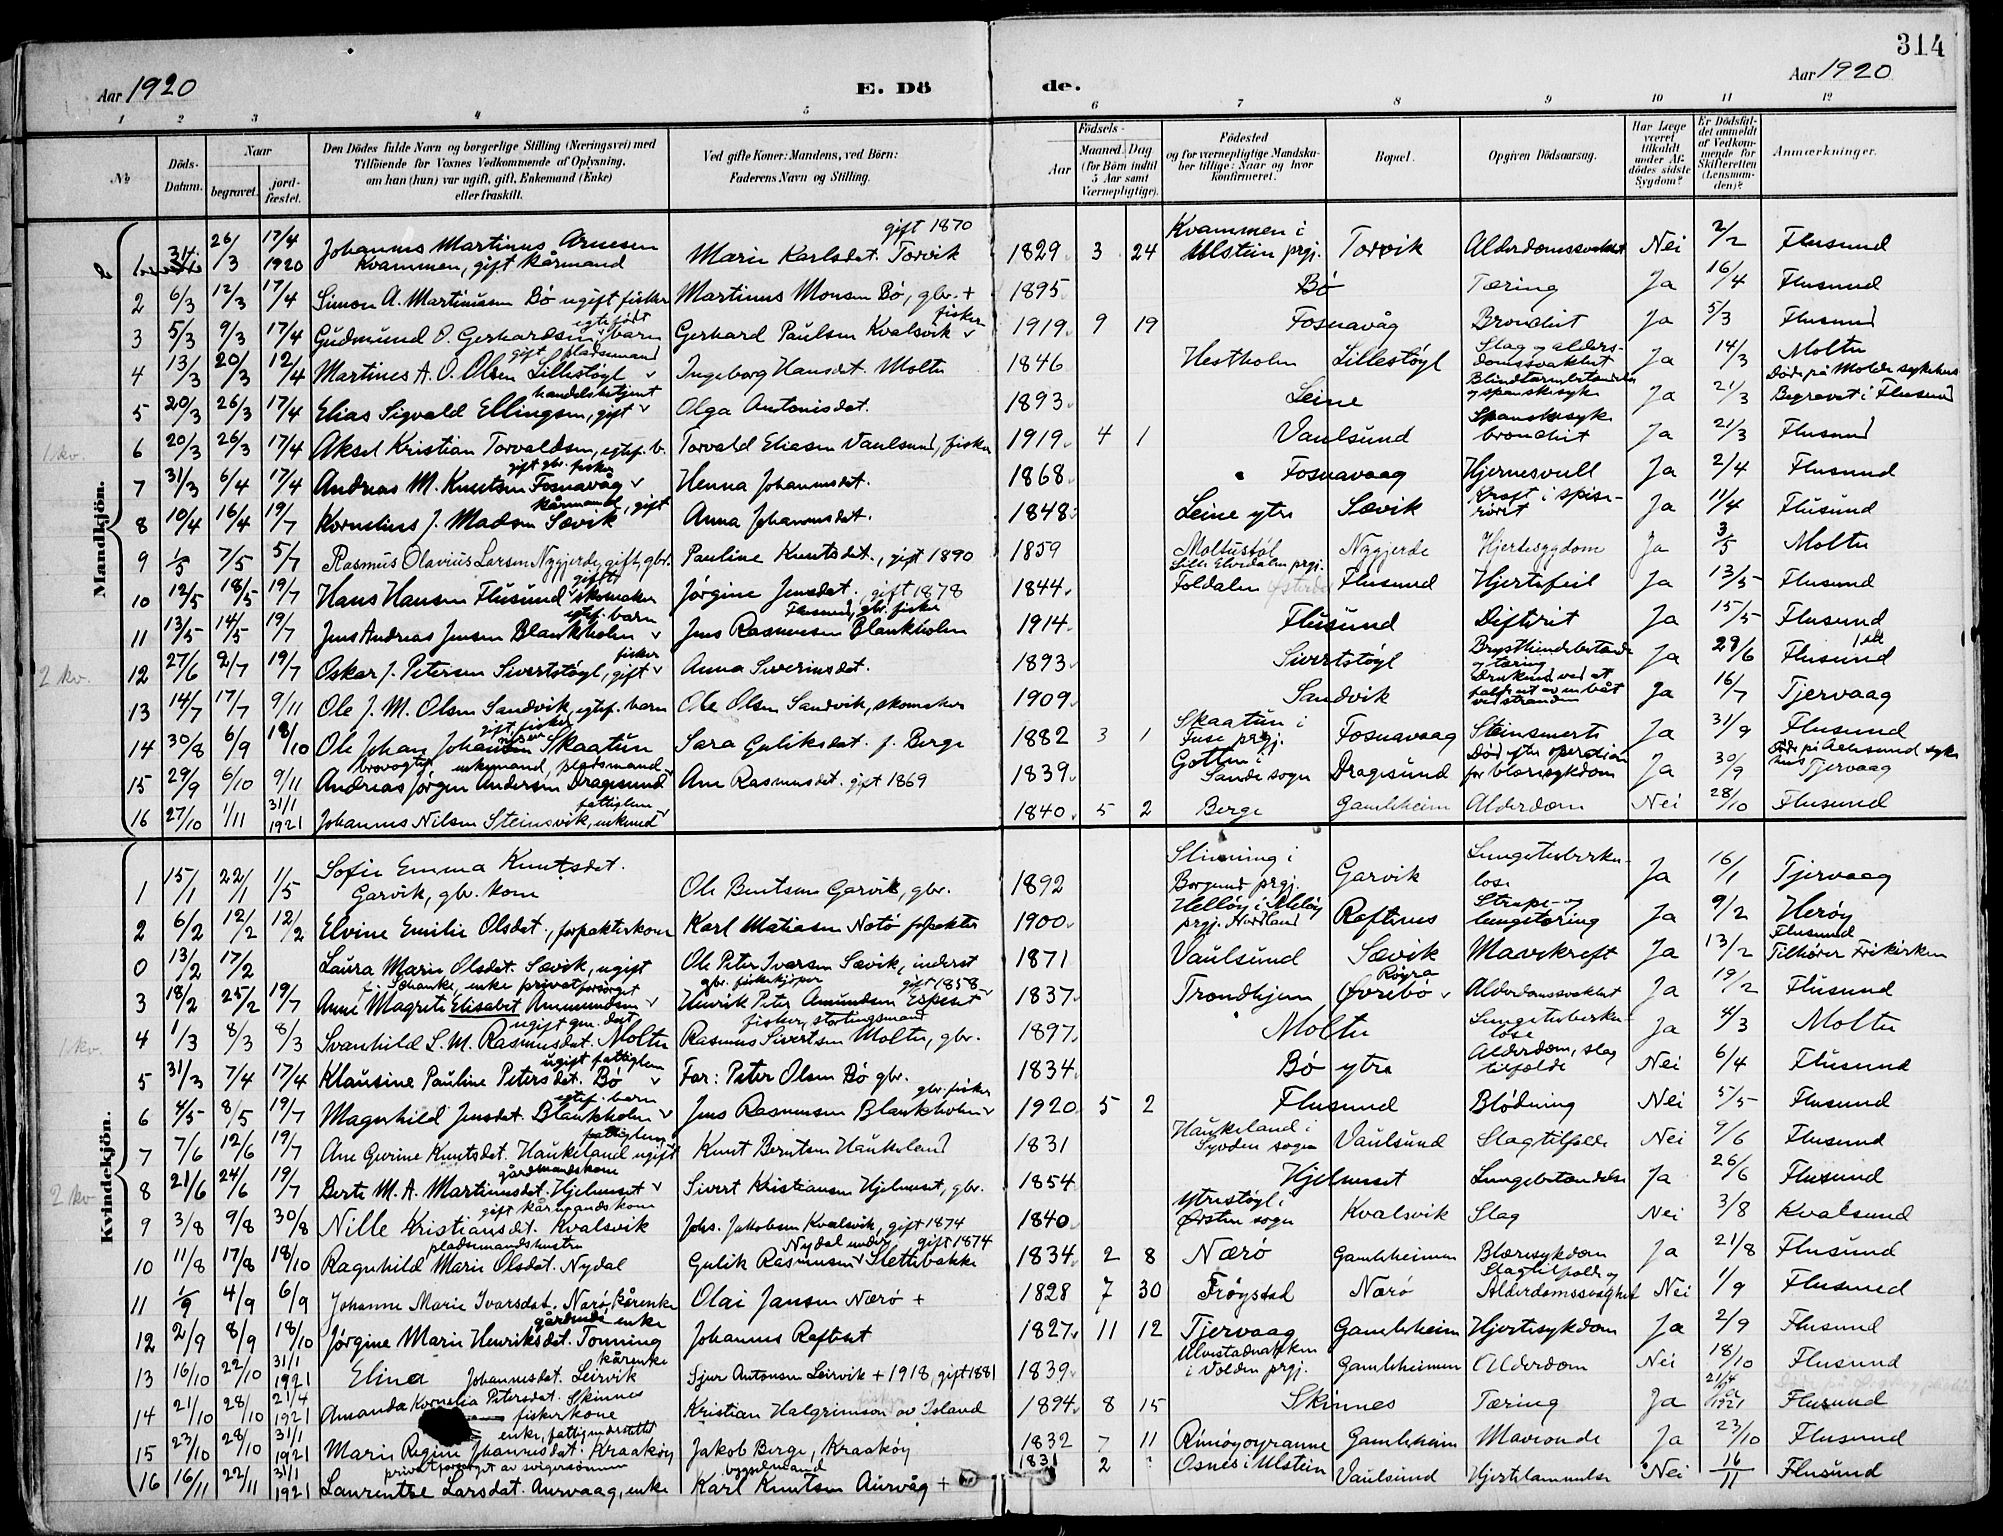 314
Aar 1920 E. Dö de. Aar 1920
1 2 3 4 5 6 7 8 9 10 11 12
No Döds-Datum. Naar begravet. jord-fæstet. Den Dödes fulde Navn og borgerlige Stilling (Næringsvei) med Tilföiende for Voxnes Vedkommende af Oplysning, om han (hun) var ugift, gift, Enkemand (Enke) eller fraskilt. Ved gifte Koner: Mandens, ved Börn: Faderens Navn og Stilling. Födsels- Aar Maaned. Dag (for Börn indtil 5 Aar samt Værnepligtige). Födested og for værnepligtige Mandskaber tillige: Naar og hvor konfirmeret. Bopæl. Opgiven Dödsaarsag. Har Læge været tilkaldt under Afdödes sidste Sygdom? Er Dödsfaldet anmeldt af Vedkommende for Skifteretten (Lensmanden)? Anmærkninger.
Mandkjön.
1 26/3 17/4 1920 Johannes Martinus Arnesen Kvammen, gift kårmand Marie Karlsdat. Torvik gift 1870 1829 3 24 Kvammen i Ulstein prgj. Torvik Alderdomssvakhet Nei 2/2 Flusund
2 6/3 12/3 17/4 Simon A. Martinusen Bø ugift fisker Martinus Monsen Bø, gbr. + 1895 Bø Tæring Ja 16/4 Flusund
3 5/3 9/3 17/4 Gudmund O. Gerhardsen egtefødt barn Gerhard Paulsen Kvalsvik fisker 1919 9 19 Fosnavåg Bronchit Ja 5/3 Flusund
4 13/3 20/3 12/4 Martines A. O. Olsen Lillestøyl gift pladsemand Ingeborg Hansdat. Moltu 1846 Hestholm Lillestøyl Slag og alderdomssvakhet Ja 14/3 Moltu
5 20/3 26/3 17/4 Elias Sigvald Ellingsen, gift handelsbetjent Olga Antonisdat. 1893 Leine Blindtarmbetændelse og spanskesyke Ja 21/3 Døde på Molde sykehus Begravet i Flusund
6 20/3 26/3 17/4 Aksel Kristian Torvaldsen, egtef. b. Torvald Eliasen Vaulsund, fisker 1919 4 1 Vaulsund Spanskesyke bronchit Ja 21/3 Flusund
7 31/3 6/4 17/4 Andreas M. Knutsen Fosnavåg gift gbr. fisker Henna Johannesdat. 1868 Fosnavaag Hjernesvull Ja 2/4 Flusund
8 10/4 16/4 19/7 Kornelius J. Madsen Sævik kårmand, gift Anna Johannesdat. 1848 Leine ytre Sævik Kræft i spiserøret Ja 11/4 Flusund
9 1/5 7/5 5/7 Rasmus Olavius Larsen Nygjerde, gift, gbr. Pauline Knutsdat., gift 1890 1859 Moltustøl Nygjerde Hjertesygdom Ja 3/5 Moltu
10 12/5 18/5 19/7 Hans Hansen Flusund gift skomaker Jørgine Jensdat. gift 1878 1844 Lille Elvedalen prgj. Foldalen Flusund Hjertefeil Ja 13/5 Flusund
11 13/5 14/5 19/7 Jens Andreas Jensen Blankholm egtef. barn Jens Rasmussen Blankholm Flusund, gbr. fisker 1914 Flusund Difterit Ja 15/5 Flusund
12 27/6 2/7 19/7 Oskar J. Petersen Sivertstøyl, gift fisker Anna Severinsdat. 1893 Sivertstøyl Brysthindebetændelse og tæring Ja 29/6 Flusund
13 14/7 17/7 9/11 Ole J. M. Olsen Sandvik, egtef. barn Ole Olsen Sandvik, skomaker 1909 Sandvik Druknet ved at falde ut av en båt ved stranden Ja 16/7 Tjervaag
14 30/8 6/9 18/10 Ole Johan Johansen Skaatun gift, fisker Sara Guliksdat. f. Berge 1882 3 1 Skaatun i Fuse prgj. Fosnavaag Steinsmerte Ja 31/9 Flusund
15 29/9 6/10 9/11 Andreas Jørgen Andersen Dragesund enkemand, pladsmand Ane Rasmusdat. gift 1869 1839 Gotten i Sande sogn Dragesund Død efter operation for blæresykdom Ja 30/9 Døde på Aalesund sykehus Tjervaag
16 27/10 1/11 31/1 1921 Johannes Nilsen Steinsvik, enkemd fattiglem 1840 5 2 Berge Gamleheim Alderdom Nei 28/10 Flusund
Kvindekjön.
1 15/1 22/1 1/5 Sofie Emma Knutsdat. Garvik, gbr. kone Ole Bentsen Garvik, gbr. 1892 Slinning i Borgund prgj. Garvik Lungetuberkulose Ja 16/1 Tjervaag
2 6/2 12/2 12/2 Elvine Emilie Olsdat., forpakterkone Karl Matiasen Notø forpakter 1900 Helløy i Meløy prgj. Nordland Raftnes Strupe- og lungetæring Ja 9/2 Herøy
0 13/2 17/2 Laura Marie Olsdat. Sævik, ugift Ole Peter Iversen Sævik, inderst 1871 Vaulsund Sævik Mavekreft Ja 13/2 Flusund Tilhører Frikirken
3 18/2 25/2 19/7 Anne Magrete Elisabet Ammundsen f. Schanke, enke privat forsørget Henrik Peter Amundsen Espeset gbr. fiskekjøper gift 1858 1837 Trondhjem Røyra Øvrebø Alderdomssvakhet Ja 19/2 Flusund
4 1/3 8/3 8/3 Svanhild S. M. Rasmusdat. Moltu ugift gm. dat. Rasmus Sivertsen Moltu, gbr. fisker, stortingsmand 1897 Moltu Lungetuberkulose Ja 4/3 Moltu
5 31/3 7/4 17/4 Klausine Pauline Petersdat. Bø ugift fattiglem Far: Peter Olsen Bø gbr. 1834 Bø ytre Alderdom, slagtilfælde Nei 6/4 Flusund
6 4/5 8/5 19/7 Magnhild Jensdat. Blankholm egtef. barn Jens Rasmussen Blankholm gbr. fisker 1920 5 2 Flusund Blødning Nei 5/5 Flusund
7 7/6 12/6 19/7 Ane Gurine Knutsdat. Haukeland ugift fattiglem Knut Berntsen Haukeland 1831 Haukeland i Syvden sogn Vaulsund Slagtilfælde Nei 9/6 Flusund
8 21/6 24/6 19/7 Berte M. A. Martinusdat. Hjelmeset gårdmandskone Sivert Kristiansen Hjelmeset, gbr. 1854 Hjelmeset Lungebetændelse Ja 26/6 Flusund
9 3/8 9/8 30/8 Nille Kristiansdt. Kvalsvik gift kårmandskone Johs. Jakobsen Kvalsvik, gift 1874 1840 Ytrestøyl i Ørsten sogn Kvalsvik Slag Nei 3/8 Kvalsund
10 11/8 17/8 18/10 Ragnhild Marie Olsdat. Nydal pladsemandshustru Gulik Rasmussen Slettebakke Nydal under gift 1874 1834 2 8 Nærø Gamleheimen Blæresykdom Ja 21/8 Flusund
11 1/9 4/9 6/9 Johanne Marie Ivarsdat. Nærø, kårenke Olai Jansen Nærø + 1828 7 30 Frøystad Nærø Slagtilfælde og Alderdomssvaghet Nei 1/9 Flusund
12 2/9 8/9 18/10 Jørgine Marie Henriksdat. Tonning gårdmds enke Johannes Rafteset 1827 11 12 Tjervaag Gamleheim Hjertesykdom Ja 2/9 Flusund
13 16/10 22/10 31/1 1921 Elina Johannesdat. Leirvik kårenke Sjur Antonsen Leirvik + 1918, gift 1881 1839 i Volden prgj. Gamleheimen Alderdom Nei 18/10 Flusund
14 21/10 28/10 21/4 1921 Amanda Kornelia Petersdat. Skinnes fiskerkone Kristian Halgrimson av Island 1894 8 15 Skinnes Tæring Ja 21/4 1921 Flusund
15 23/10 28/10 31/1 1921 Marie Regine Johannesdat. Kraakøy enke, fattigunderstøttet Jakob Berge, Kraakøy 1832 7 11 Rimøyoyranne Gamleheim Maveonde Ja 23/10 Flusund
16 16/11 22/11 31/1 1921 Laurentse Larsdat. Aurvaag, enke privat forsørget av svigersønnen Karl Knutsen Aurvåg + bygselmand 1831 2 Osnes i Ulstein Vaulsund Hjertelammelse Nei 16/11 Flusund
1 kv.
2 kv.
1 kv.
2 kv